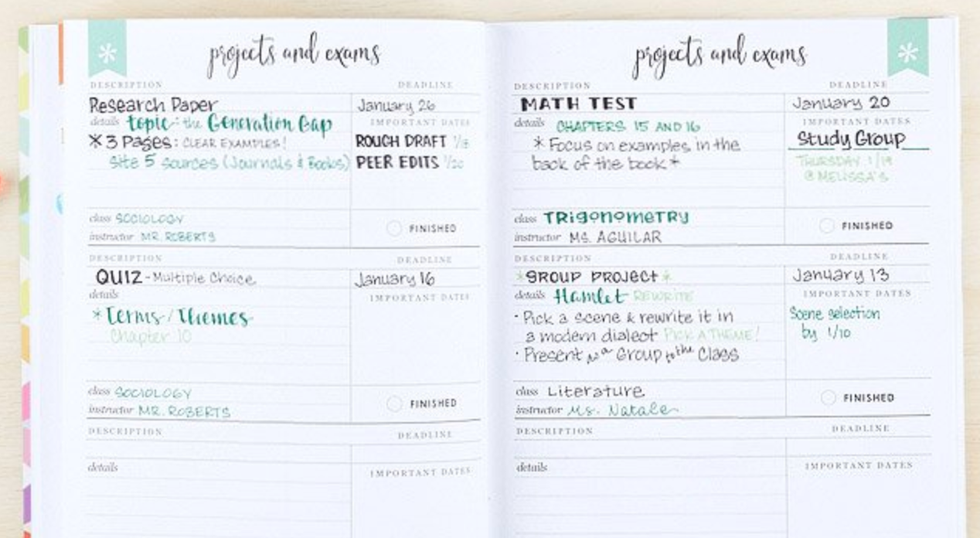 projects and exams
DESCRIPTION DEADLINE
Research Paper January 26
details topic: the Generation Gap IMPORTANT DATES
* 3 Pages: CLEAR EXAMPLES! ROUGH DRAFT
Site 5 sources (Journals & Books) PEER EDITS 1/20
class SOCIOLOGY
instructor MR. ROBERTS FINISHED
DESCRIPTION DEADLINE
QUIZ - Multiple Choice January 16
details IMPORTANT DATES
* Terms / Themes
Chapter 10
class SOCIOLOGY
instructor MR. ROBERTS FINISHED
DESCRIPTION DEADLINE
details IMPORTANT DATES
projects and exams
DESCRIPTION DEADLINE
MATH TEST January 20
details CHAPTERS 15 AND 16 IMPORTANT DATES
* Focus on examples in the Study Group
back of the book * THURSDAY 1/19
@ MELISSA'S
class TRIGONOMETRY
instructor MS. AGUILAR FINISHED
DESCRIPTION DEADLINE
*GROUP PROJECT* January 13
details Hamlet REWRITE IMPORTANT DATES
· Pick a scene & rewrite it in Scene selection
a modern dialect PICK A THEME! by 1/10
· Present as a Group to the Class
class Literature
instructor Ms. Natale FINISHED
DESCRIPTION DEADLINE
details IMPORTANT DATES